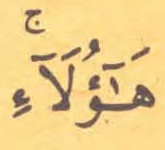 هَٰٓؤُلَآءِۚ